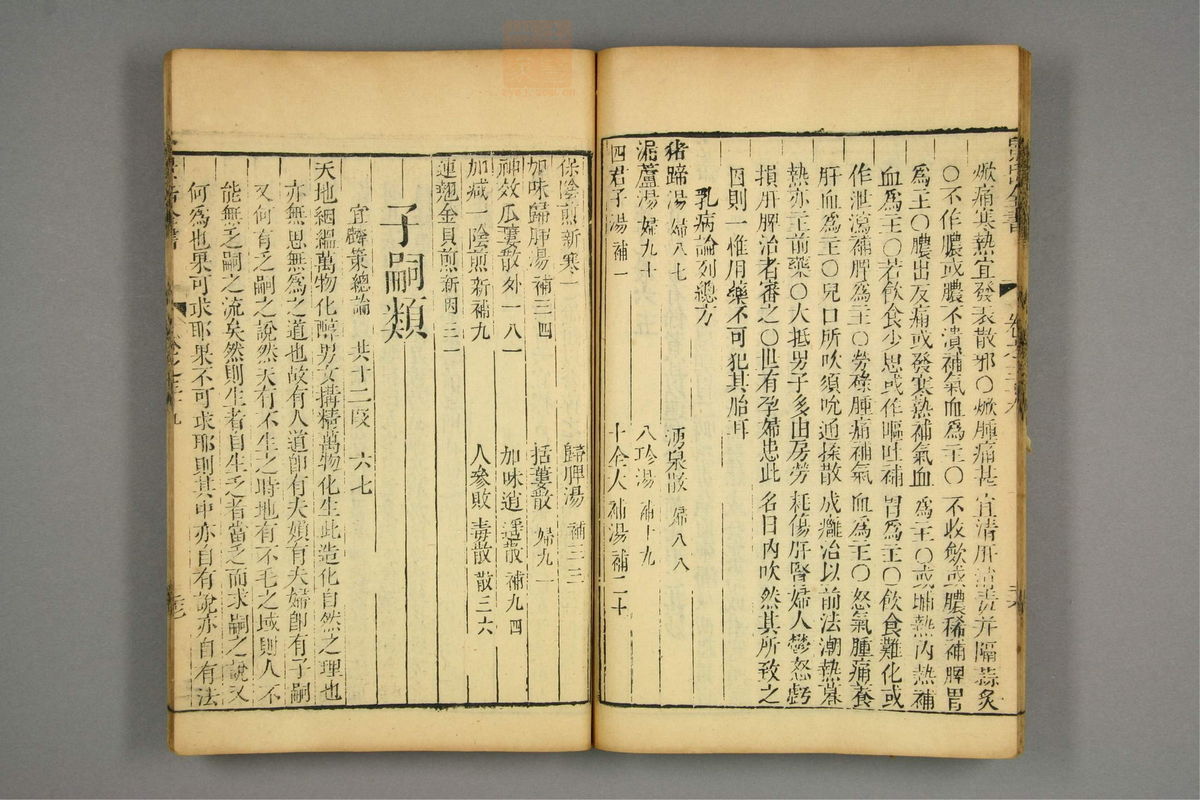 焮痛寒熱宜發表散邪○焮腫痛甚宜清肝消毒并隔蒜灸
○不作膿或膿不潰補氣血爲主○不收歛或膿稀補脾胃
爲主○膿出反痛或發寒熱補氣血爲主○或晡熱內熱補
血爲主○若飲食少思或作嘔吐補胃爲主○飲食難化或
作泄瀉補脾爲主○勞碌腫痛補氣血爲主○怒氣腫痛養
肝血爲主○兒口所吹須吮通揉散成癰治以前法潮熱暮
熱亦主前藥○大抵男子多由房勞耗傷肝腎婦人鬱怒虧
損肝脾治者審之○世有孕婦患此名曰內吹然其所致之
因則一惟用藥不可犯其胎耳
乳病論列總方
猪蹄湯 婦八七 湧泉散 婦八八
漏蘆湯 婦九十 八珍湯 補十九
四君子湯 補一 十全大補湯 補二十
保陰煎 新寒一 歸脾湯 補三二
加味歸脾湯 補三四 括蔞散 婦九一
神效瓜蔞散 外一八一 加味逍遙散 補九四
加減一陰煎 新補九 人參敗毒散 散三六
連翹金貝煎 新因三一
子嗣類
宜麟策總論 共十二叚 六七
天地絪緼萬物化醇男女搆精萬物化生此造化自然之理也
亦無思無爲之道也故有人道卽有夫婦有夫婦卽有子嗣
又何有乏嗣之說然天有不生之時地有不毛之域則人不
能無乏嗣之流矣然則生者自生乏者當乏而求嗣之說又
何爲也果可求耶果不可求耶則其中亦自有說亦自有法